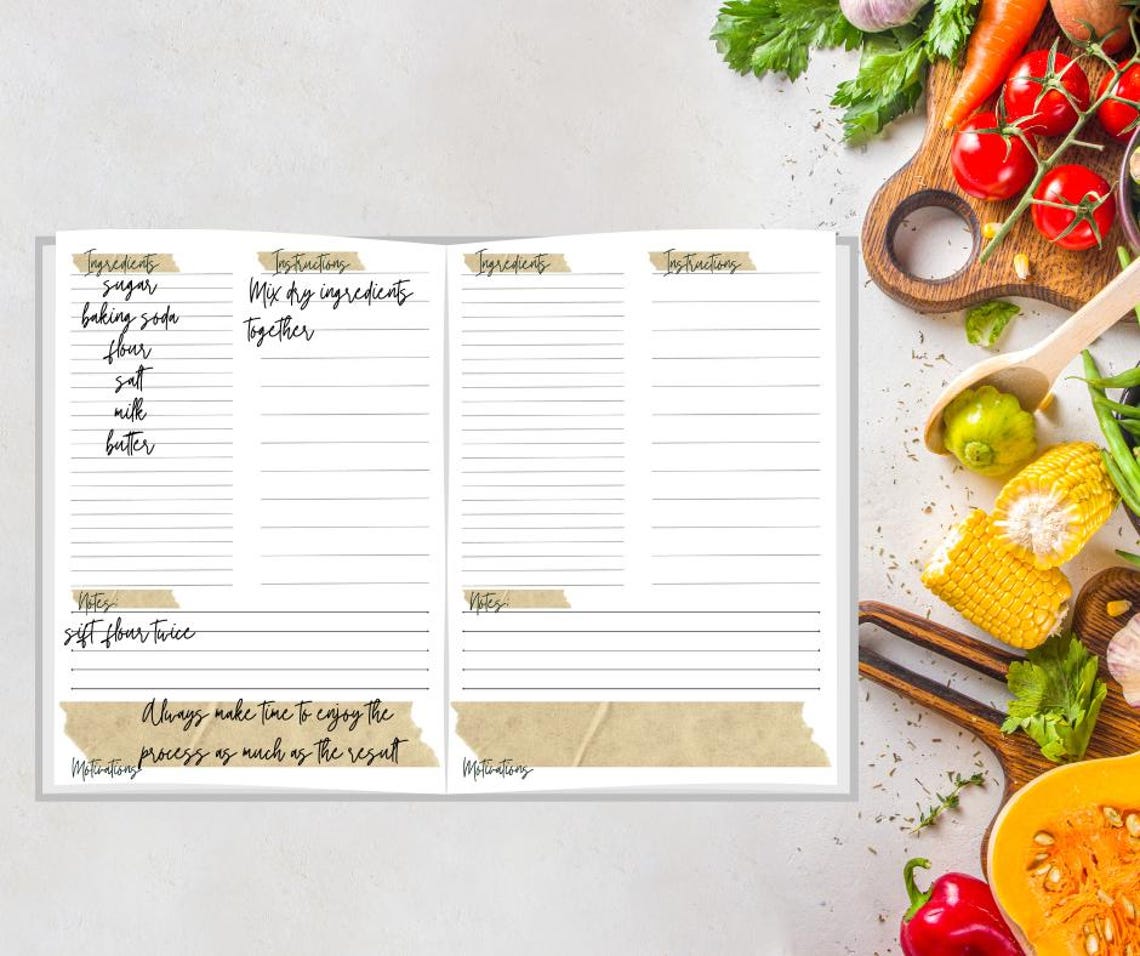 Ingredients
sugar
baking soda
flour
salt
milk
butter
Instructions
Mix dry ingredients
together
Notes:
sift flour twice
Always make time to enjoy the
process as much as the result
Motivations
Ingredients
Instructions
Notes:
Motivations